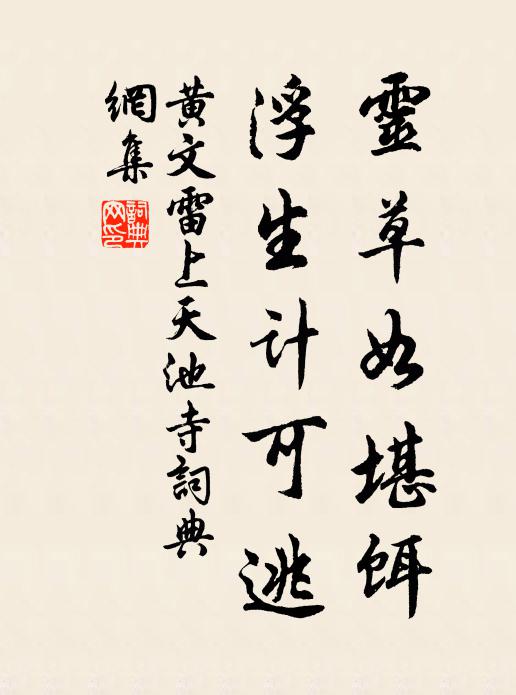 靈草如堪餌
浮生計可逃
黃文雷上天池寺詞典
網集
詞典網印